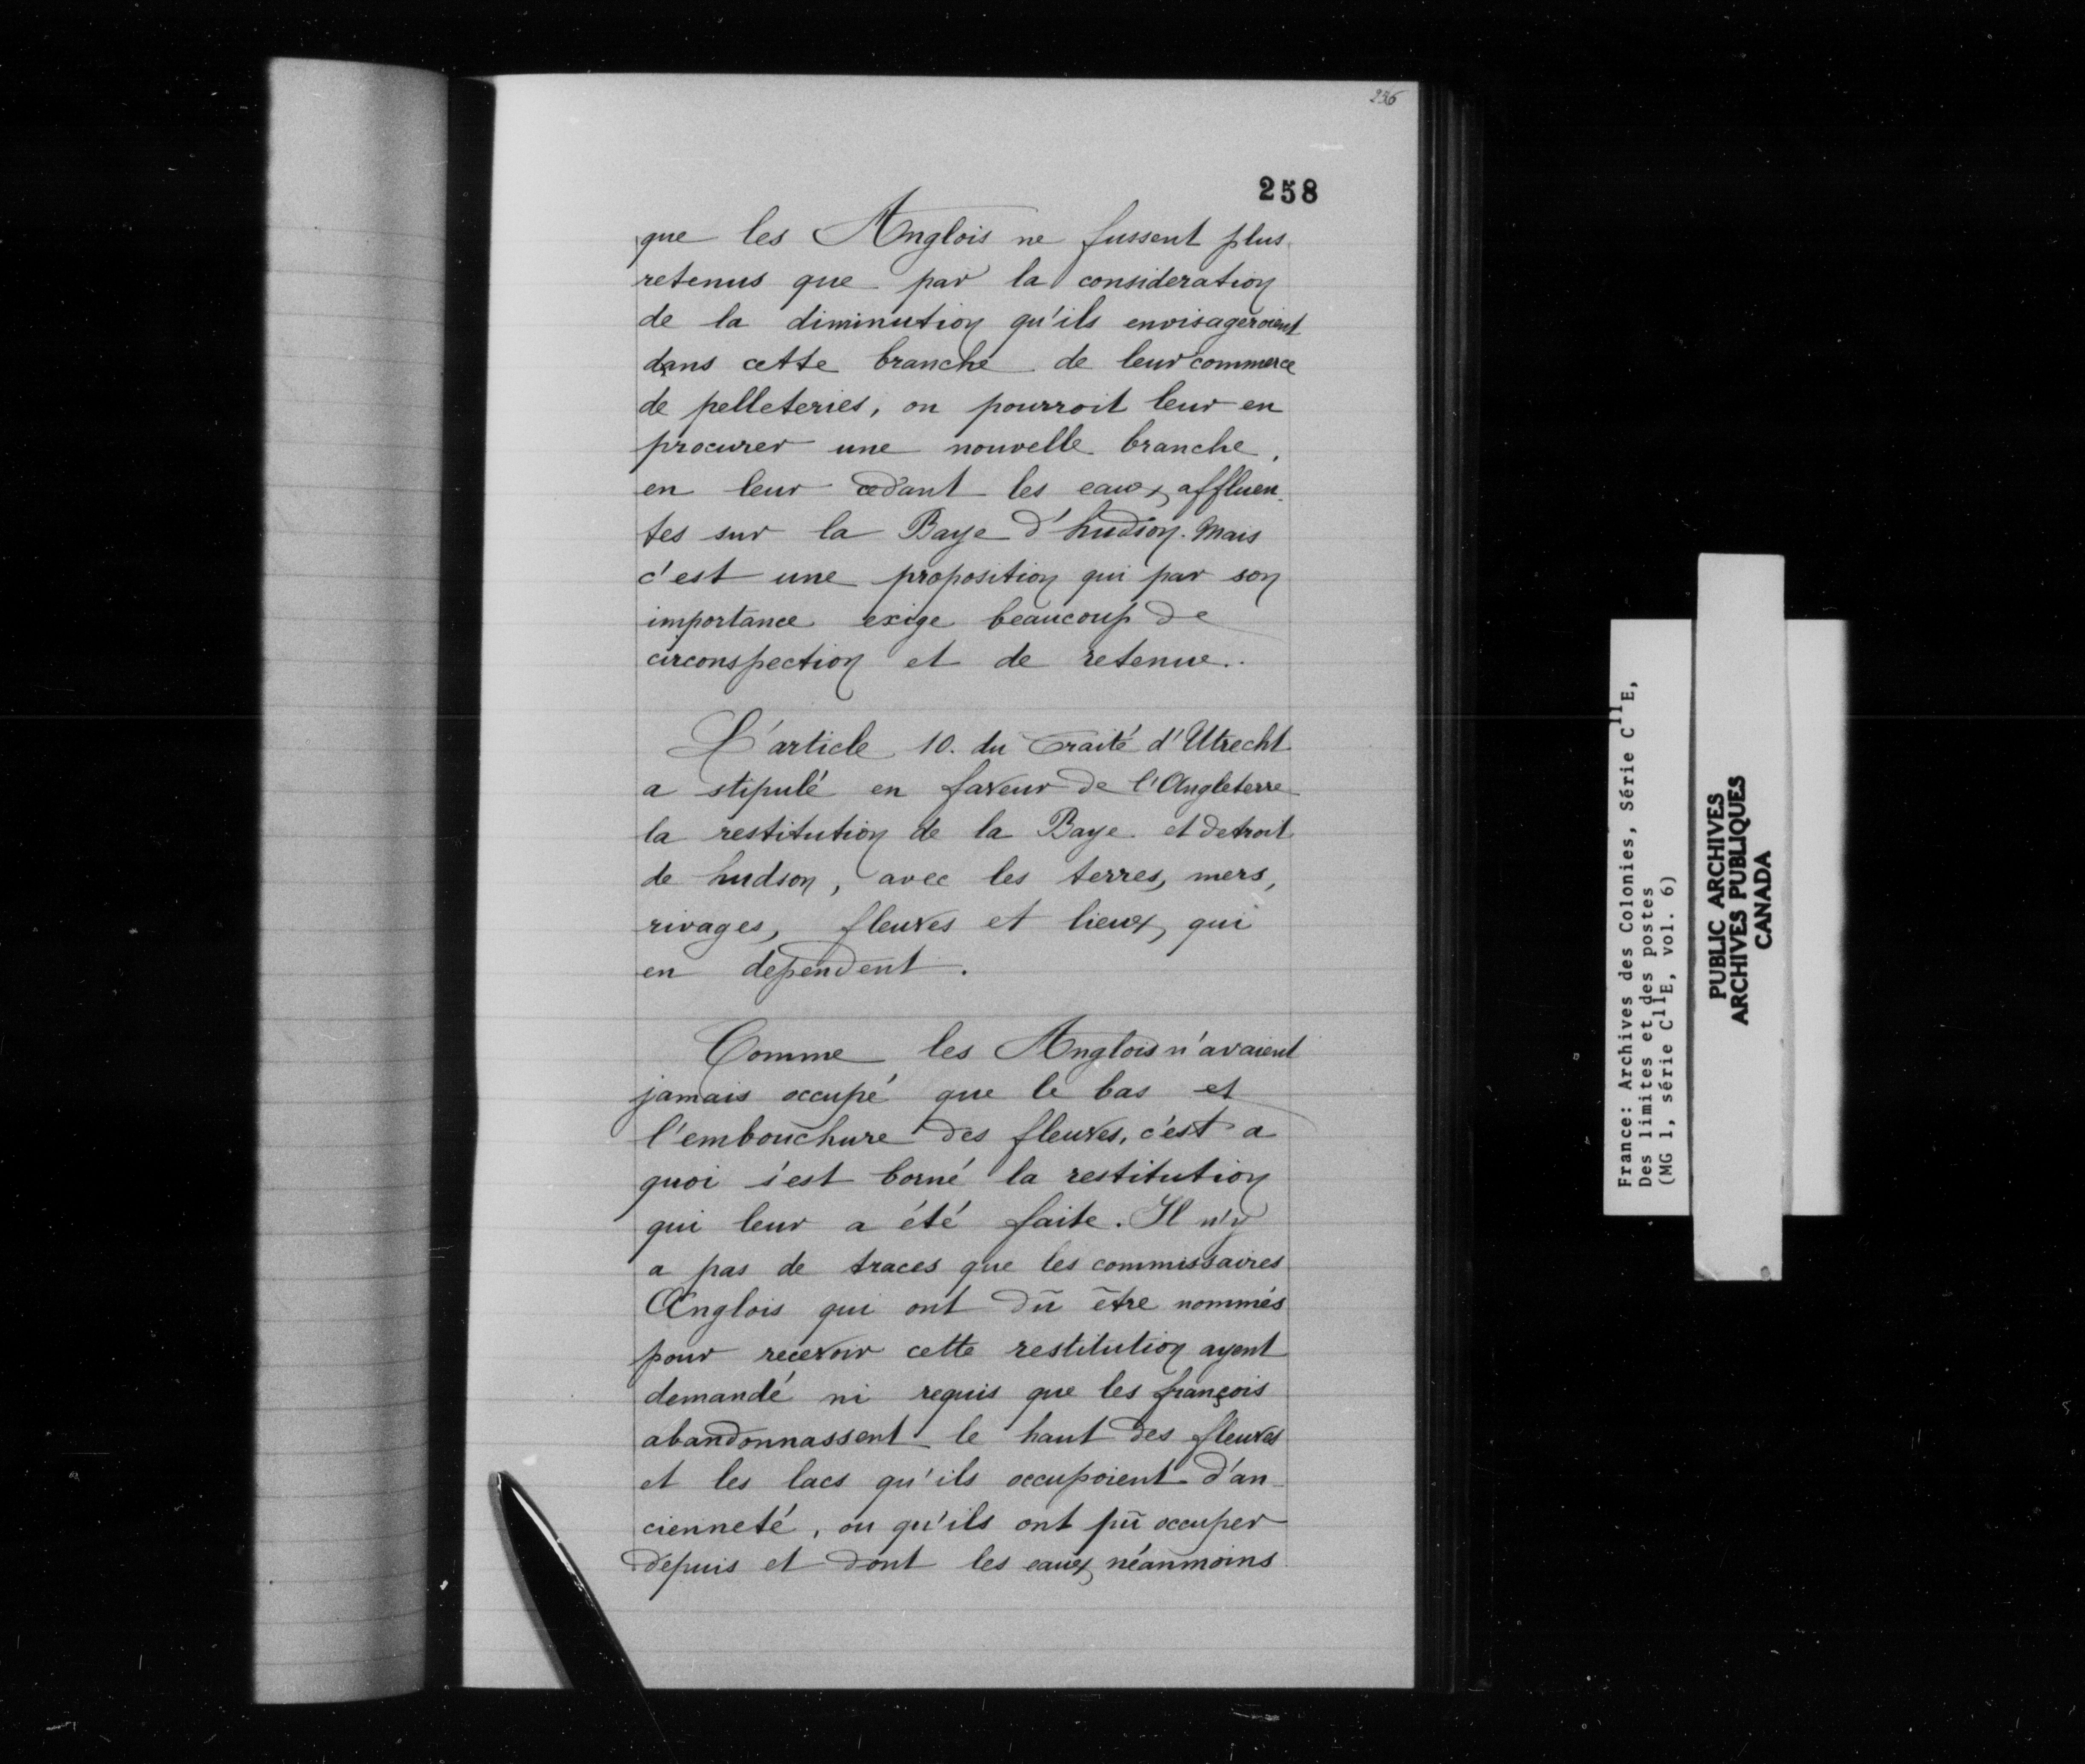 256
258
que les Anglois ne fussent plus
retenus que par la consideration
de la diminution qu'ils envisageroient
dans cette branche de leur commerce
de pelleteries, on pourroit leur en
procurer une nouvelle branche,
en leur cedant les eaux affluen-
tes sur la Baye d'hudson. Mais
c'est une proposition qui par son
importance exige beaucoup de
circonspection et de retenue..
L'article 10. du Traité d'Utrecht
a stipulé en faveur de l'Angleterre
la restitution de la Baye et detroit
de hudson, avec les terres, mers,
rivages, fleuves et lieux, qui
en dependent.
Comme les Anglois n'avaient
jamais occupé que le bas et
l'embouchure des fleuves, c'est a
quoi s'est borné la restitution
qui leur a été faite. Il n'y
a pas de traces que les commissaires
Anglois qui ont dû être nommés
pour recevoir cette restitution ayent
demandé ni requis que les françois
abandonnassent le haut des fleuves
et les lacs qu'ils occupoient d'an-
cienneté, ou qu'ils ont pû occuper
depuis et dont les eaux néanmoins
France: Archives des Colonies, Série C11E,
Des limites et des postes
(MG 1, série C11E, vol. 6)
PUBLIC ARCHIVES
ARCHIVES PUBLIQUES
CANADA